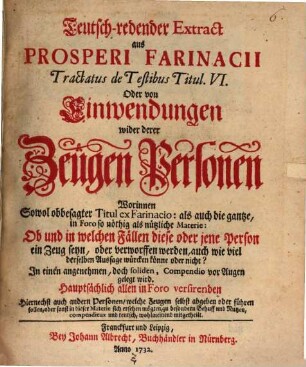 Teutsch-redender Extract
aus
PROSPERI FARINACII
Tractatus de Testibus Titul. VI.
Oder von
Einwendungen
wider derer
Zeugen Personen
Worinnen
Sowol obbesagter Titul ex Farinacio: als auch die gantze,
in Foro so nöthig als nützliche Materie:
Ob und in welchen Fällen diese oder jene Person
ein Zeug seyn, oder verworffen werden, auch wie viel
derselben Aussage würcken könne oder nicht?
In einen angenehmen, doch soliden, Compendio vor Augen
gelegt wird.
Hauptsächlich allen in Foro versirenden
Hiernechst auch andern Personen/ welche Zeugen selbst abgeben oder führen
sollen, oder sonst in dieser Materie sich ersehen mögten, zu besonderm Behuff und Nutzen,
compendieus und teutsch, wohlmeinend mitgetheilt.
Franckfurt und Leipzig,
Bey Johann Albrecht, Buchhändler in Nürnberg.
Anno 1732.